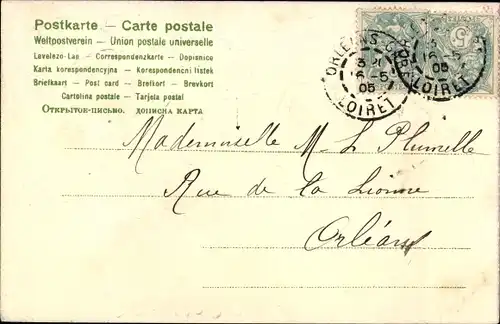 Postkarte – Carte postale
Weltpostverein – Union postale universelle
Levelezo-Lap – Correspondenzkarte – Dopisnice
Karta korespondencyjna – Korespondenčni listek
Briefkaart – Post card – Brefkort – Brevkort
Cartolina postale – Tarjeta postal
Открытое-письмо. дописна карта
ORLÉANS-GARE
16-5
05
LOIRET
16-5
05
LOIRET
5
Mademoiselle M. L. Plumelle
Rue de la Lionne
Orléans